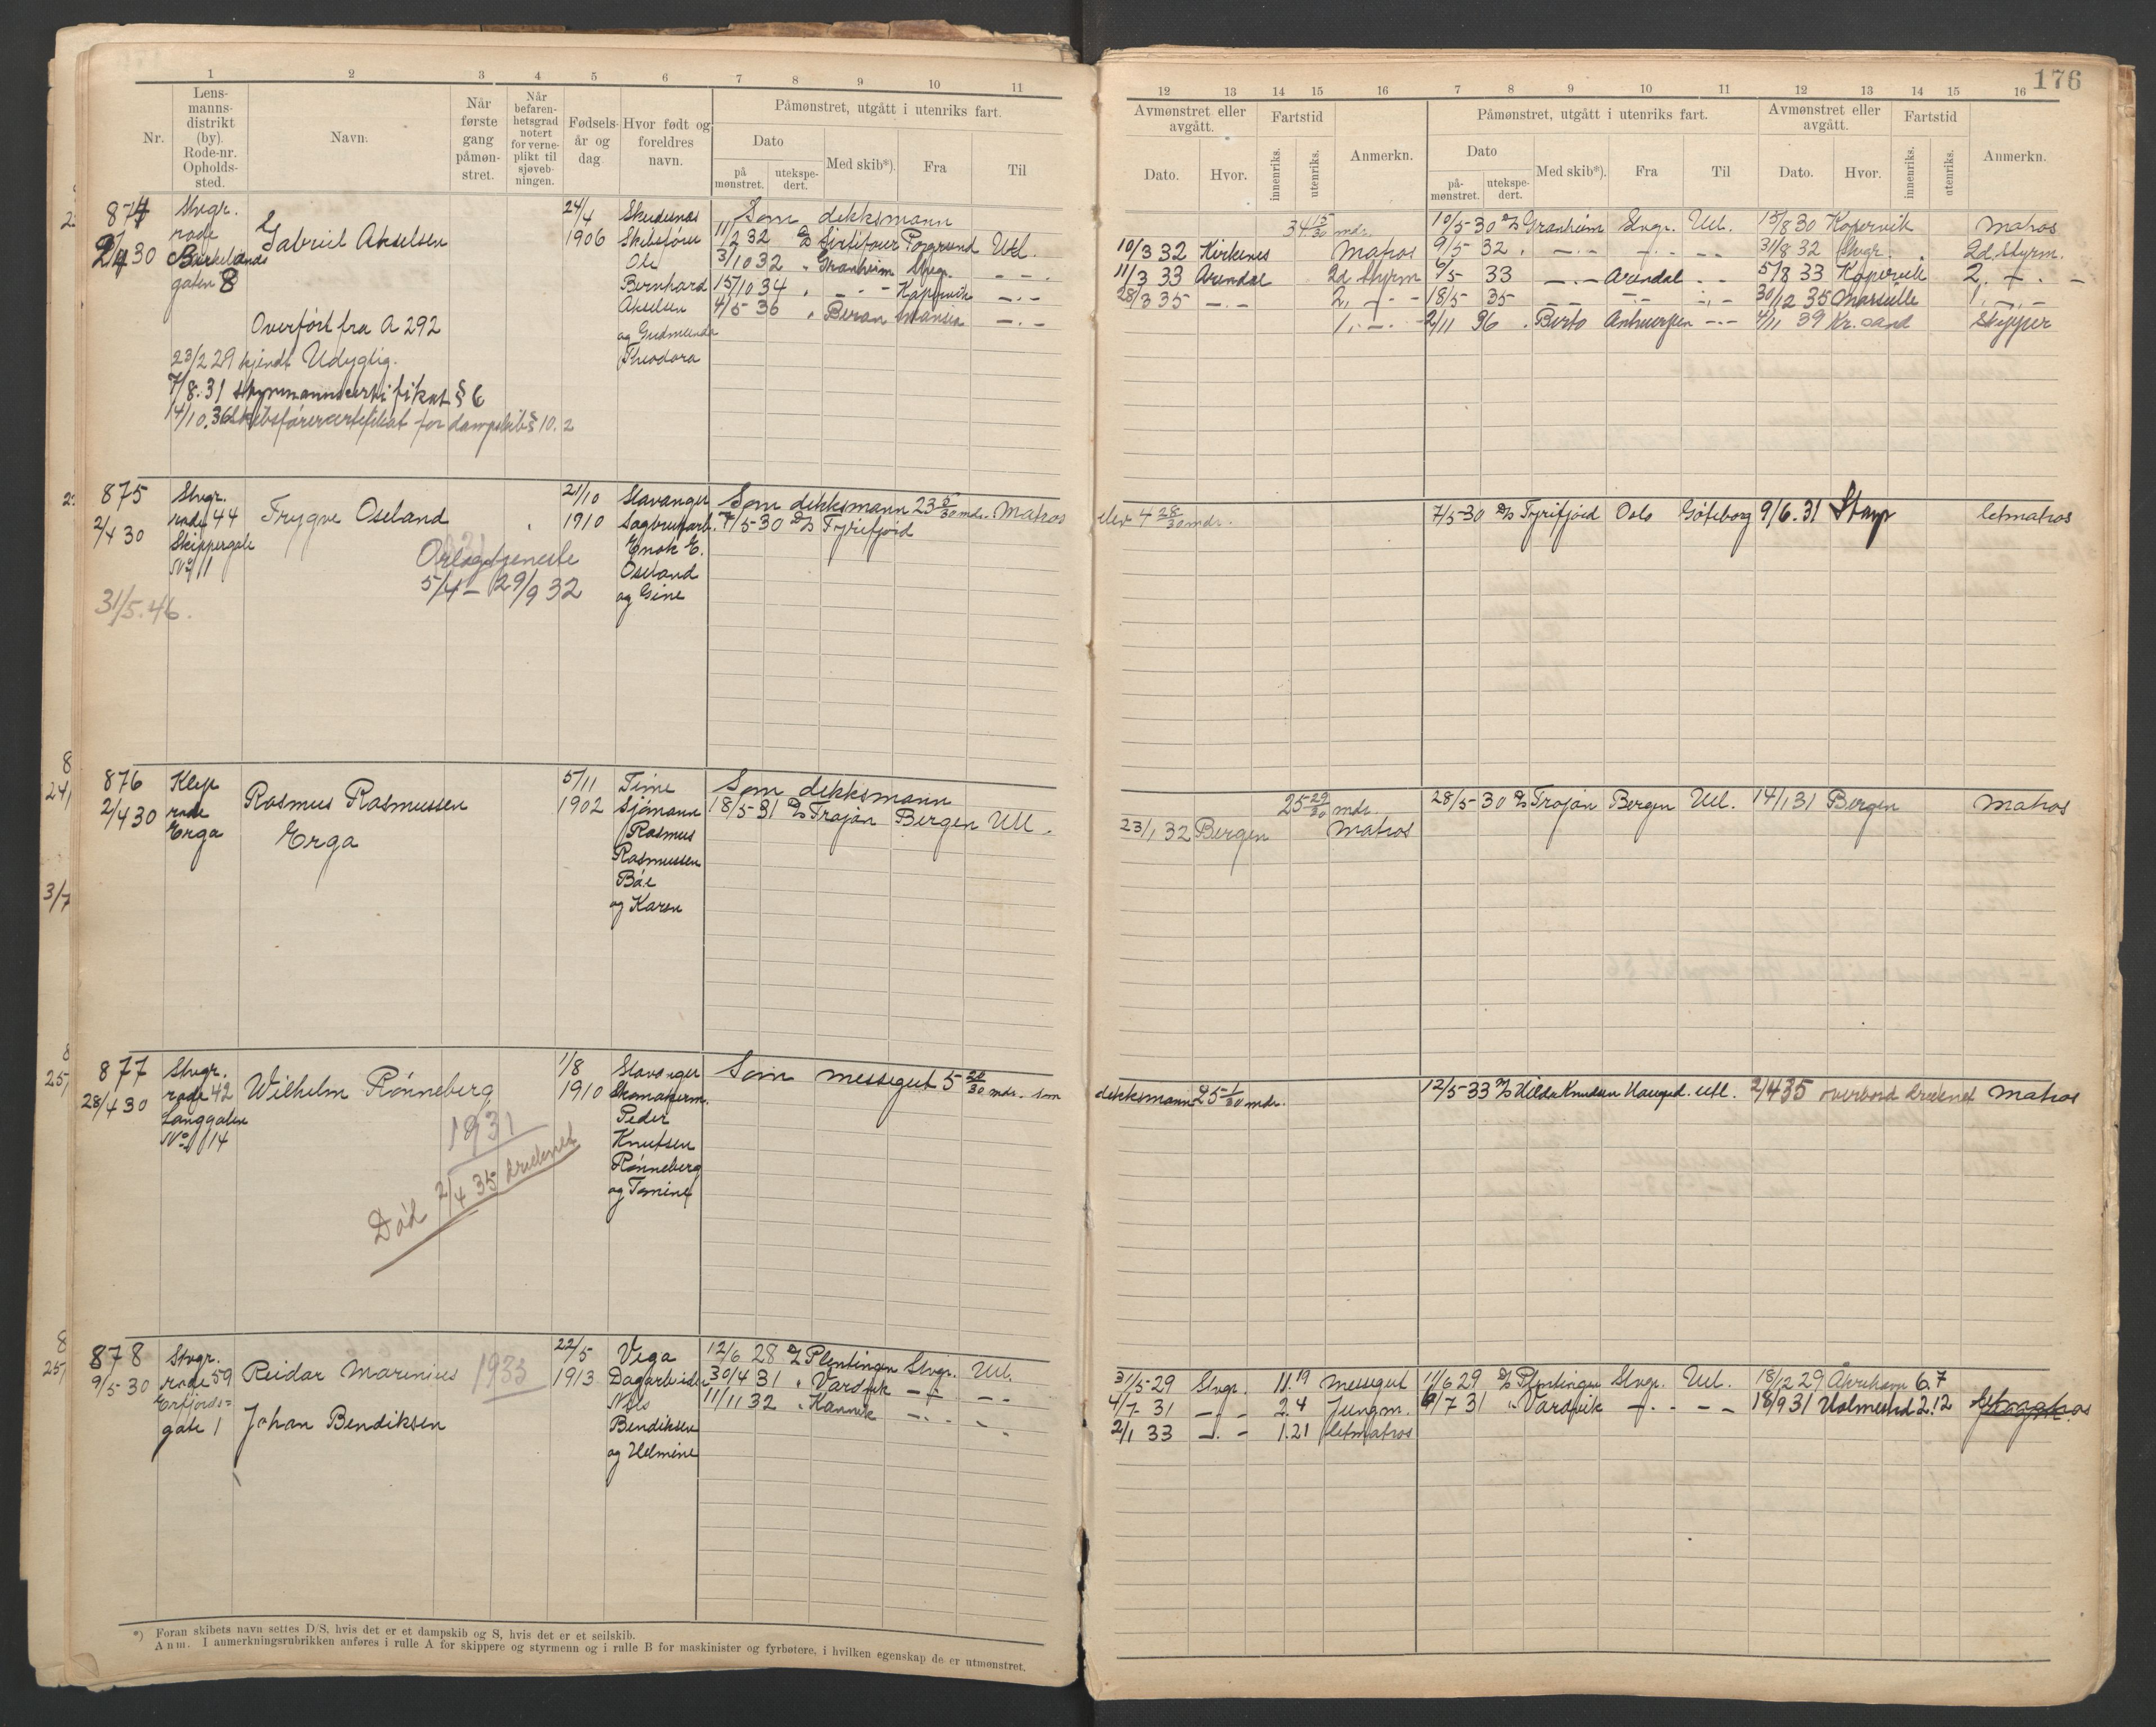 176
1 2 3 4 5 6 7 8 9 10 11
Nr.
Lens-
manns-
distrikt
(by).
Rode-nr.
Opholds-
sted.
Navn.
Når
første
gang
påmøn-
stret.
Når
befaren-
hetsgrad
notert
for verne-
plikt til
sjøveb-
ningen.
Fødsels-
år og
dag
Hvor født og
foreldres
navn.
Påmønstret, utgått i utenriks fart.
Dato
på
mønstret.
utekspe-
dert.
Med skib*).
Fra
Til
12 13 14 15 16 7 8 9 10 11 12 13 14 15 16
Avmønstret eller
avgått.
Dato.
Hvor.
Fartstid
innenriks.
utenriks.
Anmerkn.
Påmønstret, utgått i utenriks fart.
Dato
på-
mønstret.
utekspe-
dert.
Med skib*).
Fra
Til
Avmønstret eller
avgått.
Dato.
Hvor.
Fartstid
innenriks.
utenriks.
Anmerkn.
874
2/4 30
Stvgr.
rode
Birkelands
gaten 8
Gabriel Akselsen
Overført fra A 292
23/2 29 kjendt Udygtig.
7/8.31 styrmannscertifikat § 6
14/10.36 Skibsførercertefikat for dampskib § 10.2
24/4
1906
Skudesnes
Skibsfører
Ole
Bernhard
Akselsen
og Gudmunda
Theodora
Som dekksmann 34 15/30 mdr.
11/2 32 D/S Sirtifoier Porsgrund Utl.
3/10 32 " Granheim Stvgr. - - -
15/10 34 " - - - Kopervik - - -
4/5 36 " Beran - - -
10/3 32 Kirkenes Matros
11/3 33 Arendal 2d Styrm
28/3 35 - - - 2. - - -
1. - - -
10/5-30 D/S Granheim Stvgr. Utl. 15/8 30 Kopervik Matros
9/5 32 " - - - - - - 31/8 32 Stvgr. 2d Styrm.
9/5 33 - - - Arendal - - 5/8 33 Kopervik 2. - - -
18/5 35 - - - - - - 30/12 35 Marseille 1. - - -
2/11 36 " Berto Antwerpen - - - 4/11 39 Kr.sand Skipper
875
2/4 30
31/5.46.
Stvgr.
rode 44
Skippergate
No 11
Trygve Oseland
Orlogstjeneste
5/4 - 29/9 32
21/10
1910
Stavanger
Sagbruksarb.
Enok E.
Oseland
og Gine
Som dekksmann 23 5/30 mdr. Matros elev 4 28/30 mdr.
7/5-30 D/S Tyrifjord
7/5-30 D/S Tyrifjord Oslo Göteborg 9/6.31 Stvgr letmatros
876
2/4 30
Klep
rode
Erga
Rasmus Rasmussen
Erga
5/11
1902
Time
Sjømann
Rasmus
Rasmussen
Bøe
og Karen
Som dekksmann 25 29/30 mdr.
18/5-31 D/S Trajan Bergen Utl.
23/1 32 Bergen Matros
28/5-30 D/S Trajan Bergen Utl. 14/1 31 Bergen Matros
877
28/4 30
Stvgr.
rode 42
Langgaten
No 14
Wilhelm Rønneberg
1931
Død 2/4 35 druknet
1/8
1910
Stavanger
Skomakerm.
Peder
Knutsen
Rønneberg
og Tomine
Som messegut 5 20/30 mdr. som dekksmann 25 1/30 mdr.
12/5-33 M/S Hilda Knudsen Haugsd. Utl. 2/4 35 overbord druknet Matros
878
9/5-30
Stvgr.
rode 59
Erfjords-
gate 1
Reidar Marenius
Johan Bendiksen
1933
22/5
1913
Vega
Dagarbeider
Nils
Bendiksen
og Helmine
12/6 28 D/S Plentingen Stvgr. Utl.
30/4 31 " Vardvik - - - -
11/11 32 " Kannik - - - -
31/5-29 Stvgr. 11.19 Messegut
4/7-31 - - 2.4 Jungm.
2/1 33 - - 1.21 letmatros
11/6 29 D/S Plentingen Stvgr. Utl. 18/12 29 Åkrehavn 6.7
9/7 31 " Vardvik - - - - 18/9 31 Holmestrd 2.12
*) Foran skibets navn settes D/S, hvis det er et dampskib og S, hvis det er et seilskib.
Anm. I anmerkningsrubrikken anføres i rulle A for skippere og styrmenn og i rulle B for maskinister og fyrbøtere, i hvilken egenskap de er utmønstret.